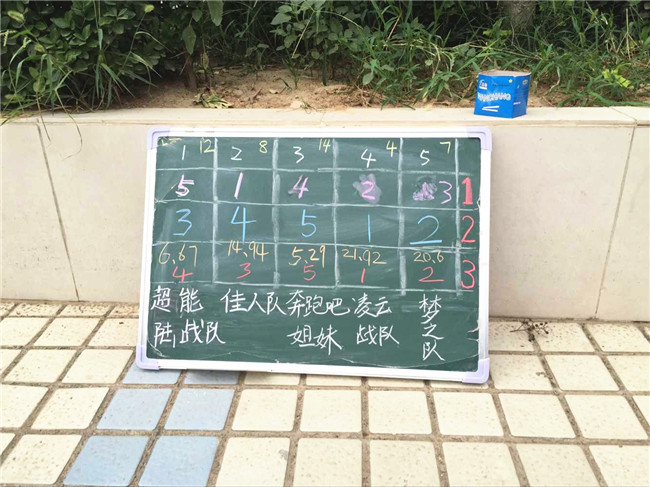 1 12 2 8 3 14 4 4 5 7
5 1 4 2 3 1
3 4 5 1 2 2
6.67 14.94 5.29 21.92 20.6
4 3 5 1 2 3
超能 佳人队 奔跑吧 凌云 梦
陆战队 姐妹 战队 之
队